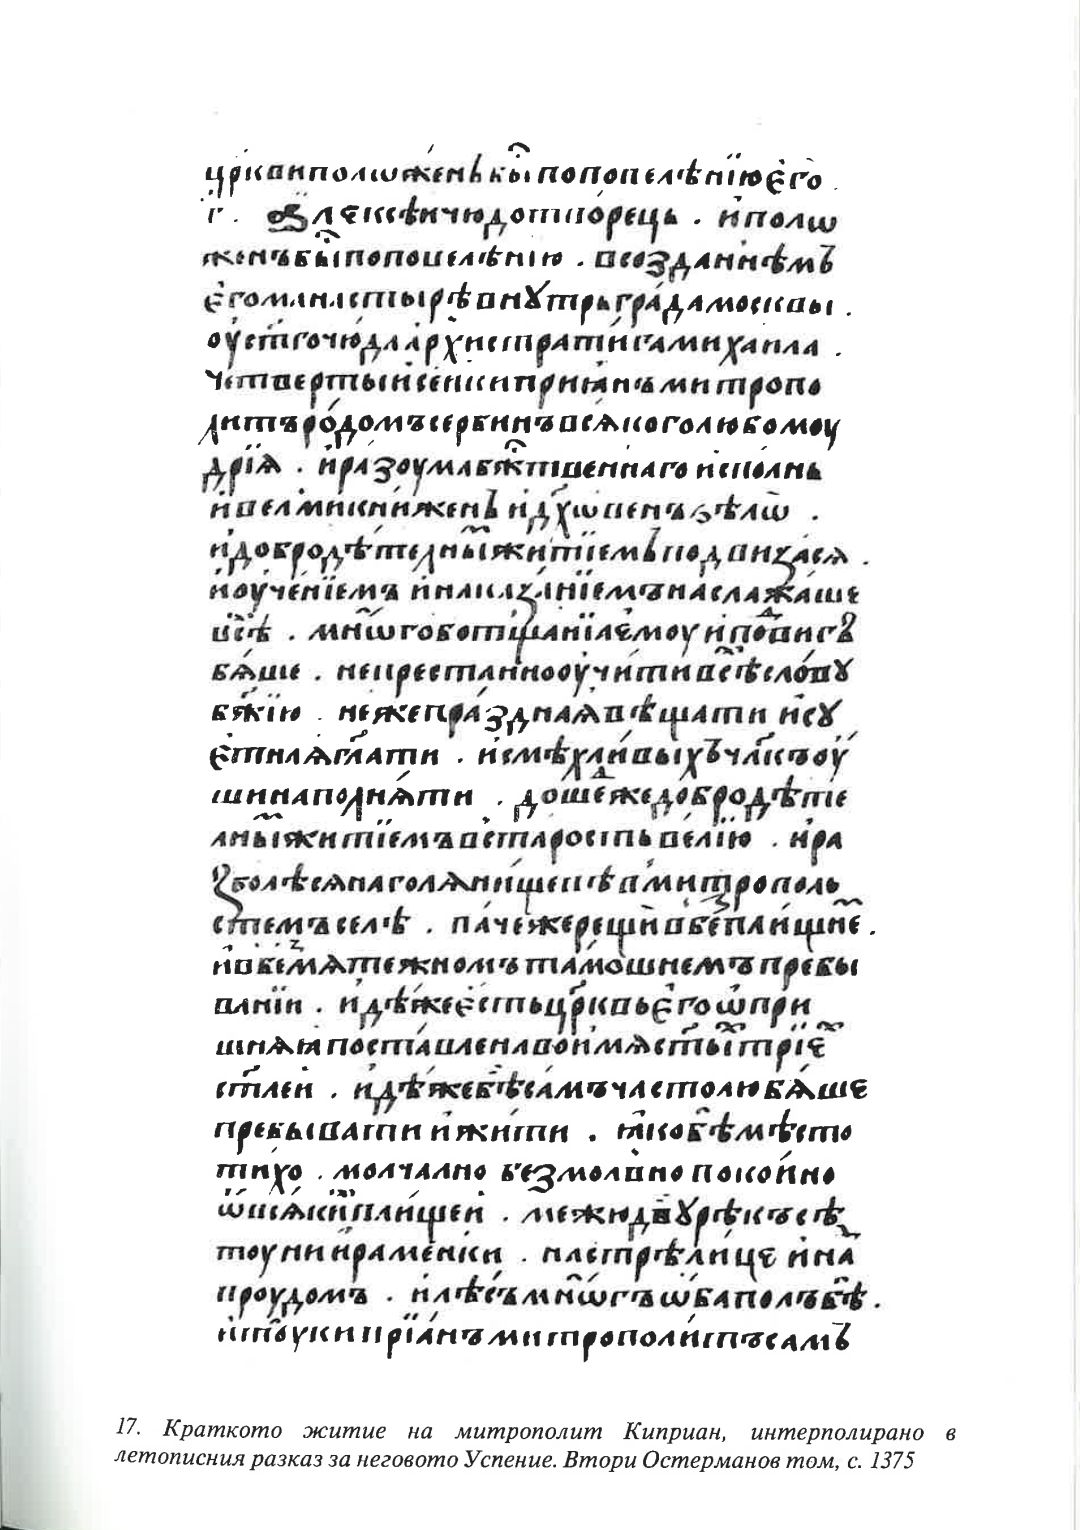 црк҃ви положенъ бы̑ по повелѣнїю є҆го̀
г҃. Ѧлеѯѣичю дотворець. и҆ поло
женъ бы̑ по повелѣнїю. в созданнѣмъ
є҆го манастырѣ внꙋтрь града москвы.
ѹ҆ ст҃го чюда архистратига михаила.
четвертыи сеи кипрїанъ митропо
литъ родомъ сербинъ всѧкого любомѹ
дрїѧ. и҆ разѹма бж҃твеннаго и҆сполнь
и҆ велми книженъ и҆ дх҃овенъ ѕѣлѡ.
и҆ добродѣтелны̑ житїемъ подвизаѧсѧ.
и҆ ѹченїемъ и҆ наказанїемъ наслажаше
всѣ. мнѡго бо тщанїа е҆мѹ и҆ подвигъ
бѧше. непрестанно ѹчити всѣ словꙋ
бж҃їю. не же празднаѧ вѣщати и҆ сꙋ
є҆тнаѧ гл҃ати. и҆ смѣхливыхъ чл҃къ ѹ
ши наполнѧти. дошеⷣже добродѣте
лны̑ житїемъ в старость велїю. и҆ ра
зболѣсѧ на голѧнищевѣ в митрополь
стемъ селѣ. паче же рещи в беплищне.
и҆ в безмѧтежномъ тамошнемъ пребы
ванїи. и҆дѣже є҆сть црк҃вь є҆го ѿ при
шнѧѧ поставлена во и҆мѧ ст҃ы трїе
ст҃леи. и҆дѣже бѣ самъ часто любѧше
пребывати и҆ жити. ꙗко бѣ мѣсто
тихо. молчално безмолвно покойно
ѿ всѧкиⷯ плищеи. межю двꙋ рѣкъ сѣ
тѹни и҆ раменки. на стрѣлице и҆ на
прѹдомъ. и҆ лѣсъ мнѡгъ ѡба полъ бѣ.
и҆ тѹ кипрїанъ митрополитъ самъ
17. Краткото житие на митрополит Киприан, интерполирано в
летописния разказ за неговото Успение. Втори Остерманов том, с. 1375